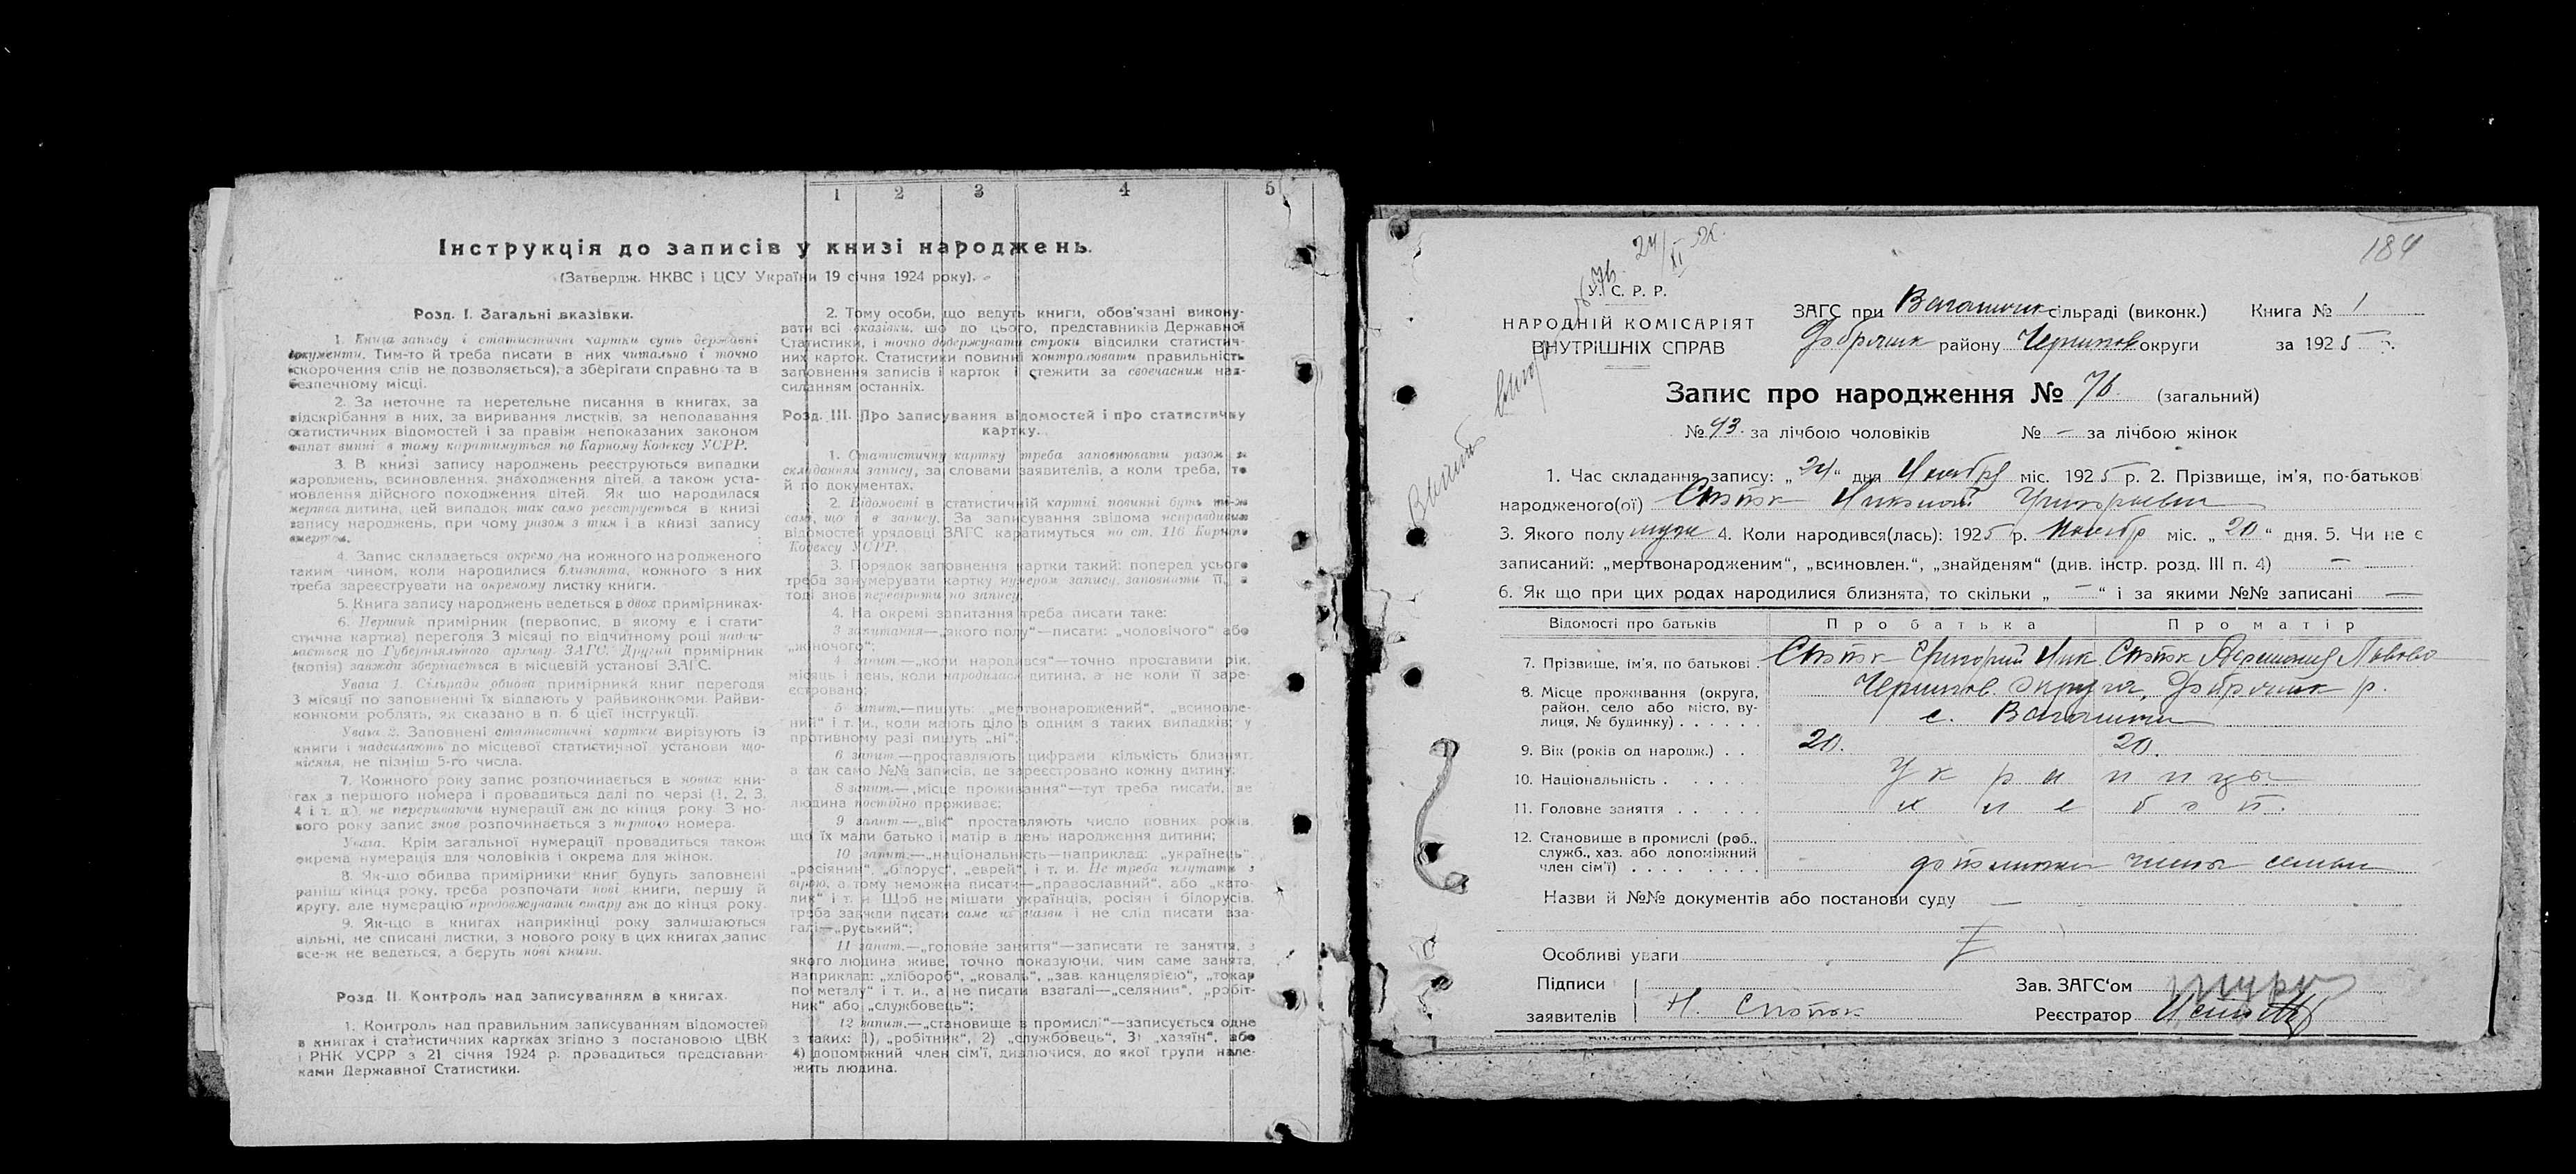 1 2 3 4 5
Інструкція до записів у книзі народжень.
(Затвердж. НКВС і ЦСУ України 19 січня 1924 року).
Розд. I. Загальні вказівки.
1. Книга запису і статистичні картки суть державні
документи. Тим-то й треба писати в них читально і точно
(скорочення слів не дозволяється), а зберігати справно та в
безпечному місці.
2. За неточне та неретельне писання в книгах, за
підскрібання в них, за виривання листків, за неподавання
статистичних відомостей і за правіж непоказаних законом
оплат винні в тому каратимуться по Карному Кодексу УСРР.
3. В книзі запису народжень реєструються випадки
народжень, всиновлення, знаходження дітей, а також уста-
новлення дійсного походження дітей. Як що народилася
мертва дитина, цей випадок так само реєструється в книзі
запису народжень, при чому разом з тим і в книзі запису
смертів.
4. Запис складається окремо на кожного народженого
таким чином, коли народилися близнята, кожного з них
треба зареєструвати на окремому листку книги.
5. Книга запису народжень ведеться в двох примірниках.
6. Перший примірник (первопис, в якому є і стати-
стична картка) перегодя 3 місяці по відчитному році надси-
лається до Губерніяльного архиву ЗАГС. Другий примірник
(копія) завжди зберігається в місцевій установі ЗАГС.
Увага 1. Сільради обидва примірники книг перегодя
3 місяці по заповненні їх віддають у райвиконкоми. Райви-
конкоми роблять, як сказано в п. 6 цієї інструкції.
Увага 2. Заповнені статистичні картки вирізують із
книги і надсилають до місцевої статистичної установи що-
місяця, не пізніш 5-го числа.
7. Кожного року запис розпочинається в нових кни-
гах з першого номера і провадиться далі по черзі (1, 2, 3,
4 і т. д.), не перериваючи нумерації аж до кінця року. З но-
вого року запис знов розпочинається з першого номера.
Увага. Крім загальної нумерації провадиться також
окрема нумерація для чоловіків і окрема для жінок.
8. Як-що обидва примірники книг будуть заповнені
раніш кінця року, треба розпочати нові книги, першу й
другу, але нумерацію продовжувати стару аж до кінця року.
9. Як-що в книгах наприкінці року залишаються
вільні, не списані листки, з нового року в цих книгах запис
все-ж не ведеться, а беруть нові книги.
Розд. II. Контроль над записуванням в книгах.
1. Контроль над правильним записуванням відомостей
в книгах і статистичних картках згідно з постановою ЦВК
і РНК УСРР з 21 січня 1924 р. провадиться представни-
ками Державної Статистики.
2. Тому особи, що ведуть книги, обов'язані викону-
вати всі вказівки, що до цього, представників Державної
Статистики, і точно додержувати строки відсилки статистич-
них карток. Статистики повинні контролювати правильність
заповнення записів і карток і стежити за своєчасним над-
силанням останніх.
Розд. III. Про записування відомостей і про статистичну
картку.
1. Статистичну картку треба заповнювати разом з
складанням запису, за словами заявителів, а коли треба, то
й по документах.
2. Відомості в статистичній картці повинні буть ті-ж
самі, що і в запису. За записування звідома неправдивих
відомостей урядовці ЗАГС каратимуться по ст. 116 Карного
Кодексу УСРР.
3. Порядок заповнення картки такий: поперед усього
треба занумерувати картку нумером запису, заповнити її, а
тоді знов перевірити по запису.
4. На окремі запитання треба писати таке:
3 запитання—„якого полу“—писати: „чоловічого“ або
„жіночого“;
4 запит.—„коли народився“—точно проставити рік,
місяць і день, коли народилася дитина, а не коли її заре-
єстровано;
5 запит.—пишуть: „мертвонароджений“, „всиновле-
ний“ і т. и., коли мають діло з одним з таких випадків; у
противному разі пишуть „ні“.
6 запит.—проставляють цифрами кількість близнят,
а так само №№ записів, де зареєстровано кожну дитину;
8 запит.—„місце проживання“—тут треба писати, де
людина постійно проживає;
9 запит.—„вік“ проставляють число повних років,
що їх мали батько і матір в день народження дитини;
10 запит.—„національність—наприклад: „українець“
„росіянин“, „білорус“, „еврей“, і т. и. Не треба плутати з
вірою, а тому неможна писати—„православний“, або „като-
лик“ і т. и. Щоб не мішати українців, росіян і білорусів,
треба завжди писати саме ці назви і не слід писати вза-
галі—„руський“;
11 запит.—„головне заняття“—записати те заняття, з
якого людина живе, точно показуючи, чим саме занята,
наприклад: „хлібороб“, „коваль“, „зав. канцелярією“, „токар
по металу“ і т. и., а не писати взагалі—„селянин“, „робіт-
ник“ або „службовець“;
12 запит.—„становище в промислі“—записується одне
з таких: 1), „робітник“, 2) „службовець“, 3) „хазяїн“, або
4) допоміжний член сім'ї, дивлючися, до якої групи нале-
жить людина.
184
№ 76 24/XI 25.
У. С. Р. Р.
НАРОДНІЙ КОМІСАРІЯТ
ВНУТРІШНІХ СПРАВ
ЗАГС при сільраді (виконк.) Книга № 1
району Чернигов округи за 1925 р.
Запис про народження № 76. (загальний)
№ 43. за лічбою чоловіків № — за лічбою жінок
1. Час складання запису: „24“ дня Ноября міс. 1925 р. 2. Прізвище, ім'я, по-батькові
народженого(ої) Николай Григорьевич
3. Якого полу муж 4. Коли народився(лась): 1925 р. Ноябр міс. „20“ дня. 5. Чи не є
записаний: „мертвонародженим“, „всиновлен.“, „знайденям“ (див. інстр. розд. III п. 4) —
6. Як що при цих родах народилися близнята, то скільки „—“ і за якими №№ записані —
Відомості про батьків Про батька Про матір
7. Прізвище, ім'я, по батькові. Григорий Ник.
8. Місце проживання (округа, район, село або місто, ву-лиця, № будинку) . . . . . . Чернигов. округа, р.
с.
9. Вік (років од народж.) . . 20. 20.
10. Національність . . . . . Украинцы
11. Головне заняття . . . . . хлебоп.
12. Становище в промислі (роб.,
служб., хаз. або допоміжний
член сім'ї) . . . . . . . . члены семьи
Назви й №№ документів або постанови суду —
Особливі уваги
Підписи
заявителів
Зав. ЗАГС'ом
Реєстратор